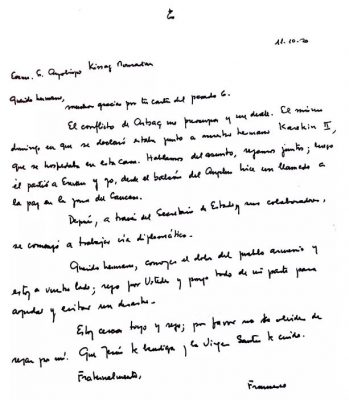 11-10-20
Exmo. S. Arzobispo Kissag Mouradian
Querido hermano,
muchas gracias por tu carta del pasado 6.
El conflicto de Artsaj me preocupa y me duele. El mismo
domingo en que se declaró estaba junto a nuestro hermano Karekin II,
que se hospedaba en esta casa. Hablamos del asunto, rezamos juntos; luego
él partió a Erevan y yo, desde el balcón del Angelus hice un llamado a
la paz en la zona del Caucaso.
Después, a través del Secretario de Estado y sus colaboradores,
se comenzó a trabajar vía diplomática.
Querido hermano, comparto el dolor del pueblo armenio y
estoy a vuestro lado; rezo por Ustedes y pongo todo de mi parte para
ayudar y evitar un desastre.
Estoy cerca tuyo y rezo; por favor no te olvides de
rezar por mí. Que Jesús te bendiga y la Virgen Santa te cuide.
Fraternalmente,
Francisco